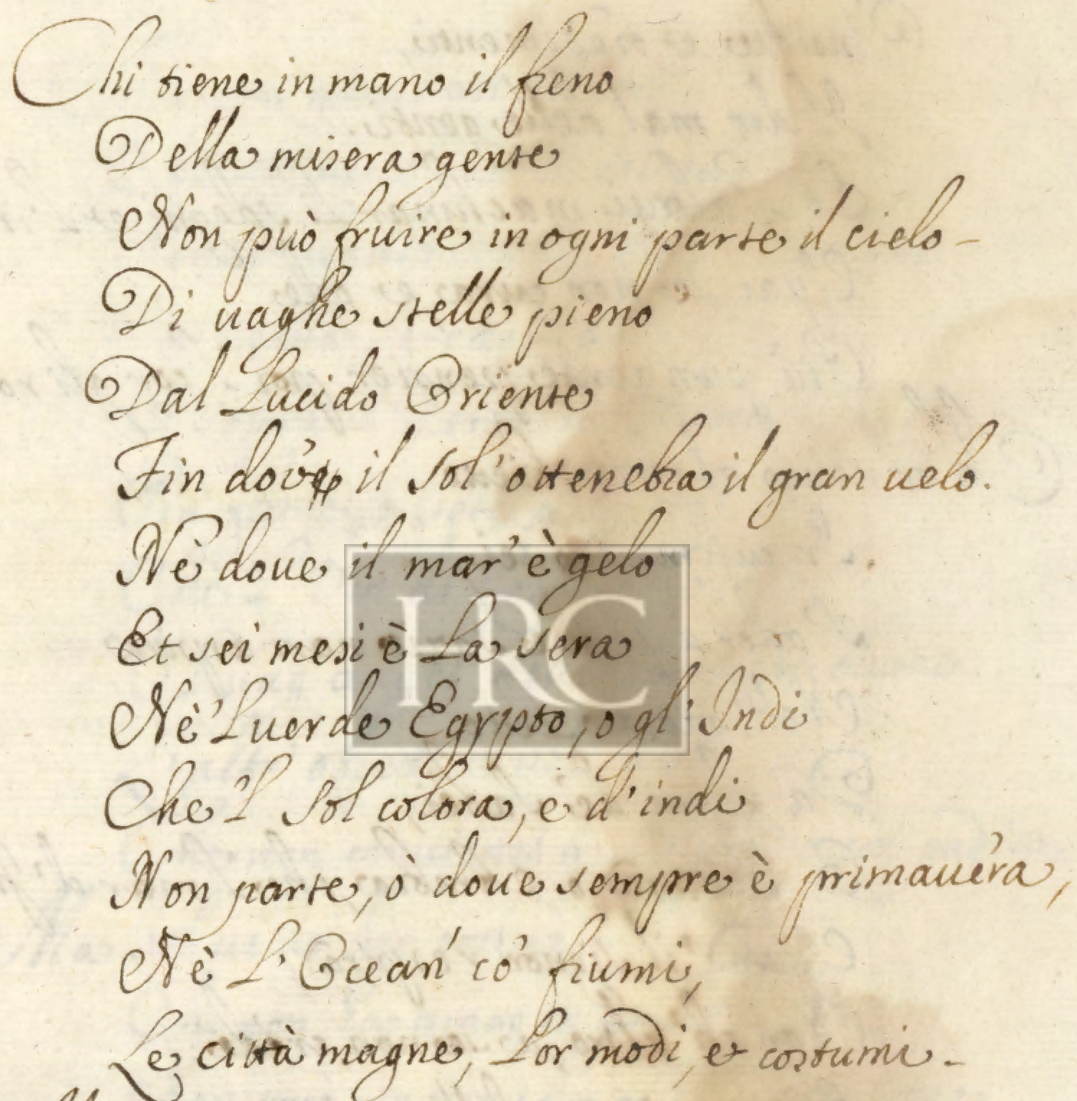 Chi tiene in mano il freno
Della misera gente
Non può fruire in ogni parte il cielo -
Di uaghe stelle pieno
Dal Lucido Oriente
Fin dove il Sol' ottenebra il gran uelo.
Nè doue il mar' è gelo
Et sei mesi è La sera
Nè 'L uerde Egypto, o gl' Indi
Che 'L Sol colora, e d' indi
Non parte, ò doue sempre è primauera,
Nè L' Ocean' co' fiumi,
Le città magne, Lor modi, et costumi -
HRC